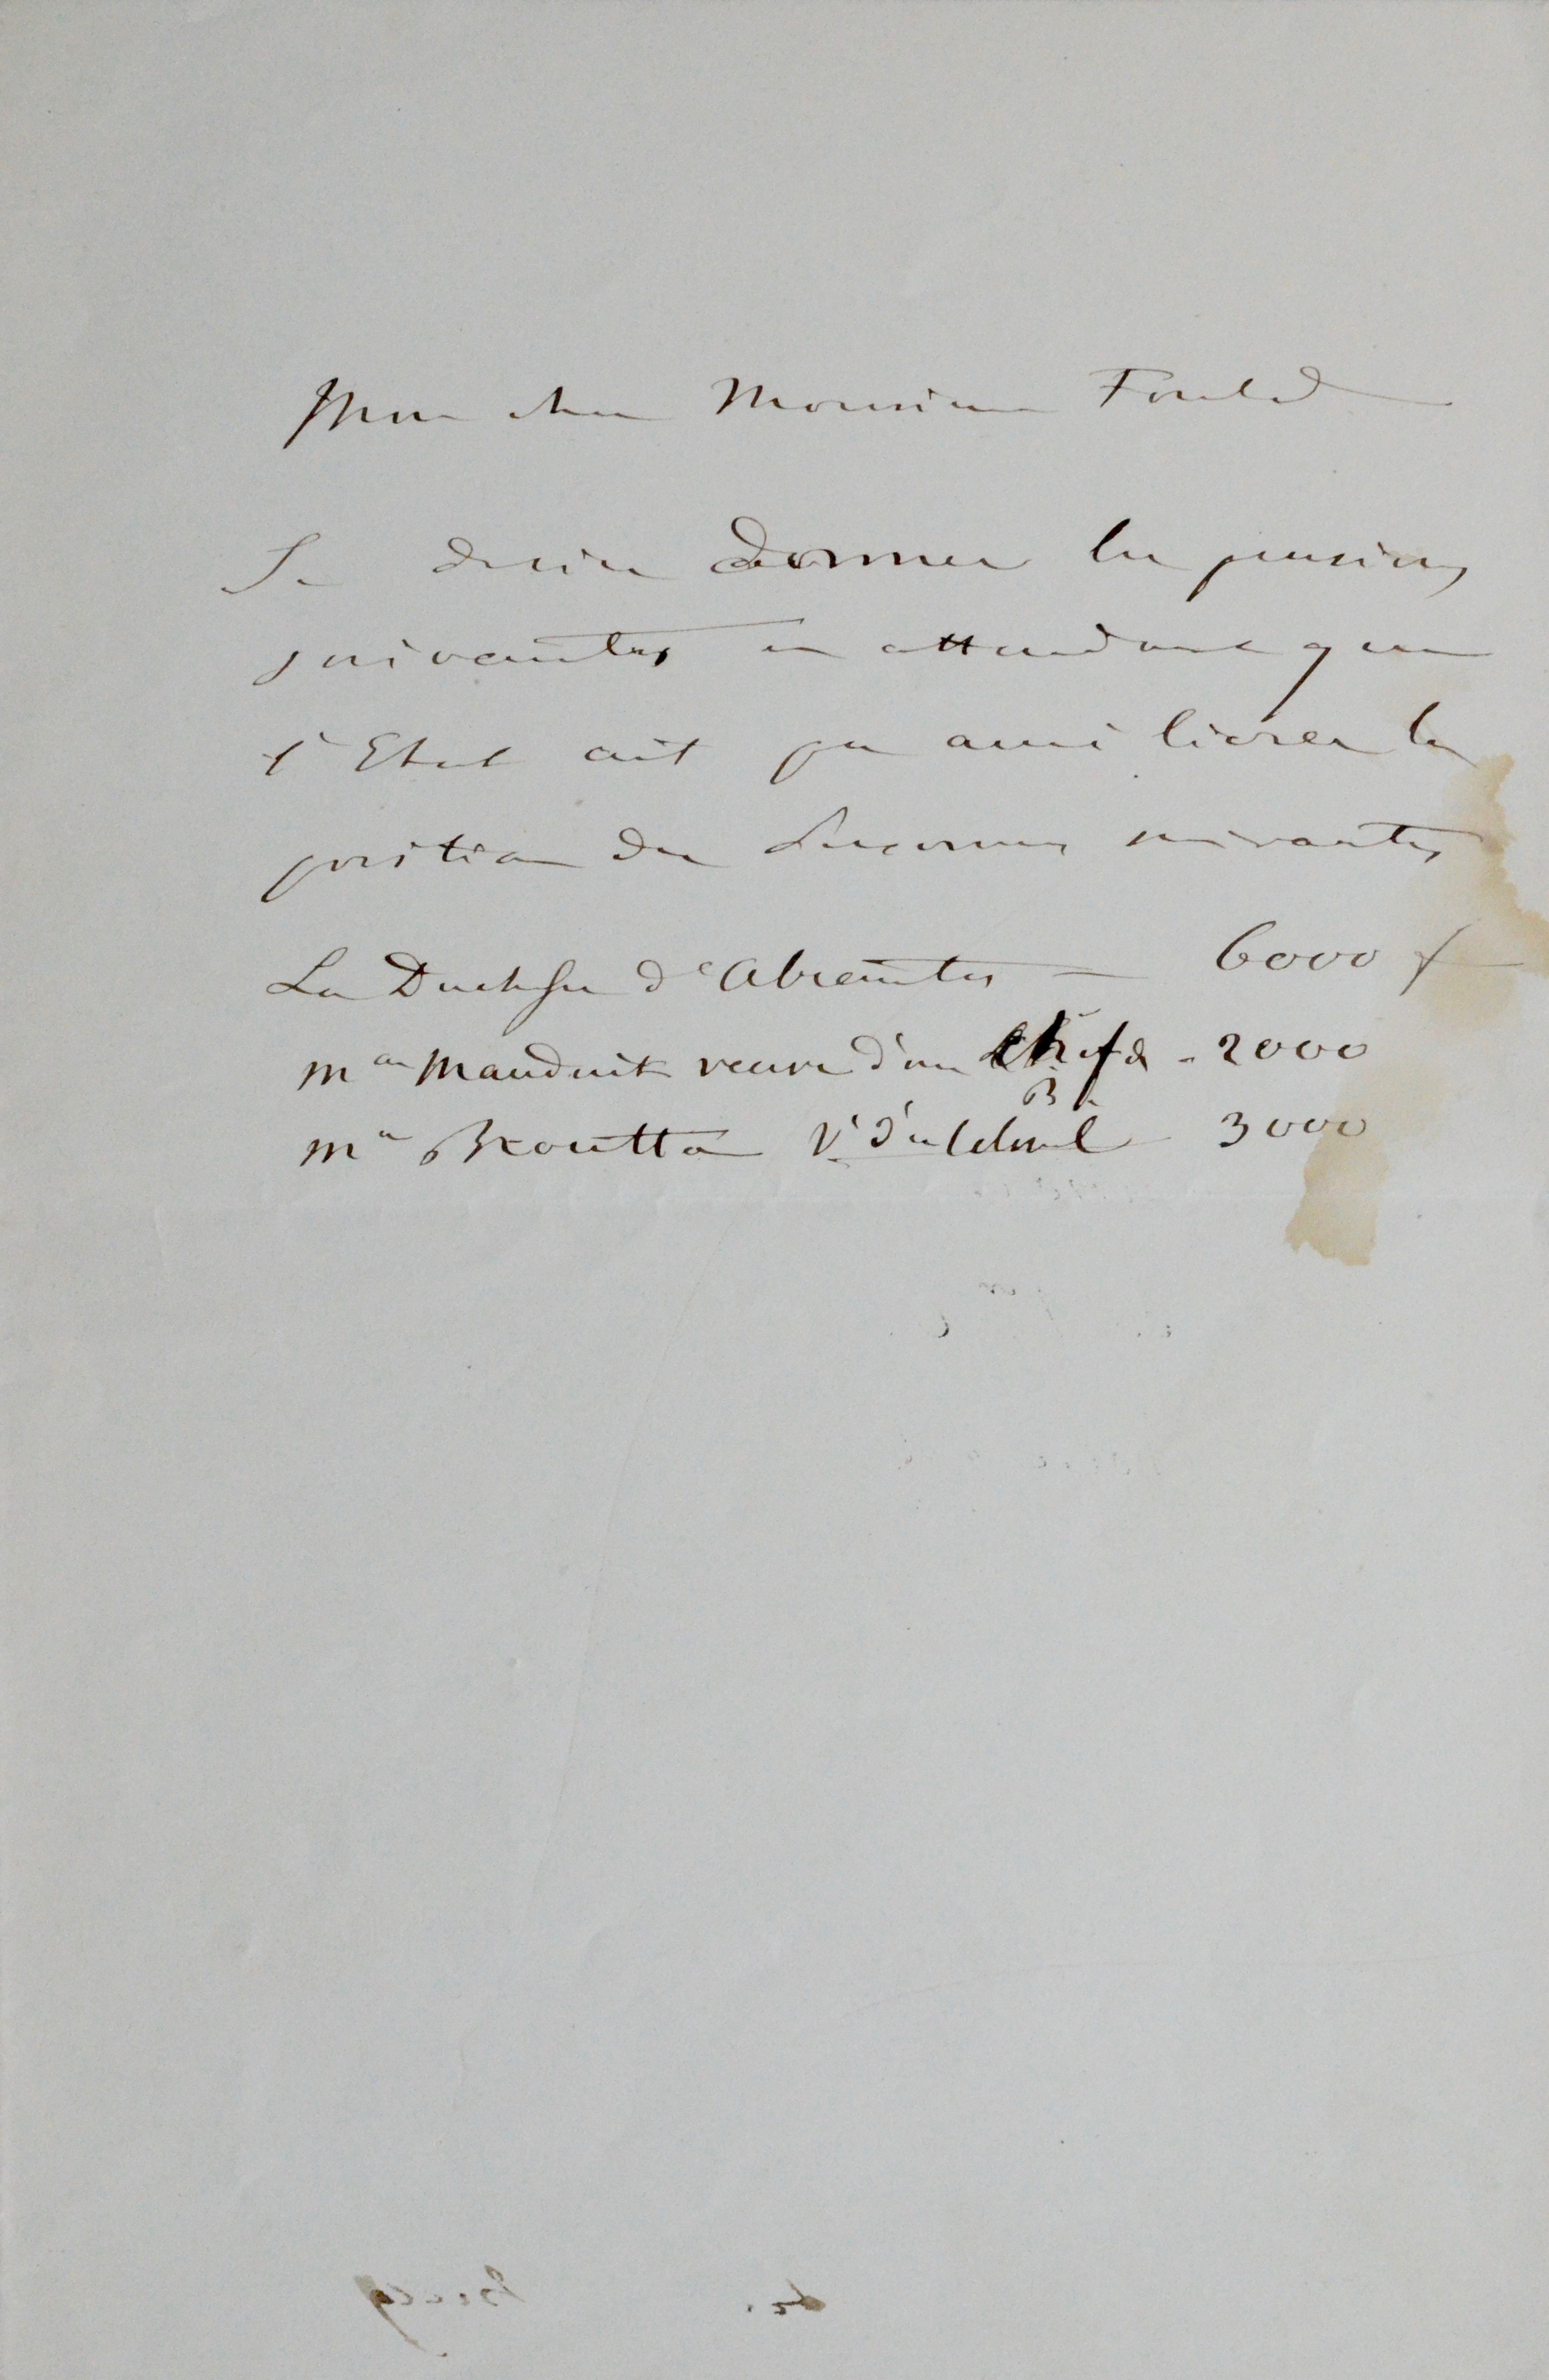 Mon cher Monsieur Fould
Je désire donner les pensions
suivantes en attendant que
l'Etat ait pu améliorer la
position des personnes suivantes
La Duchesse d'Abrantès — 6000 f
Mme Mauduit veuve d'un chef de B. - 2000
Me Broutta Ve d'un Colonel 3000